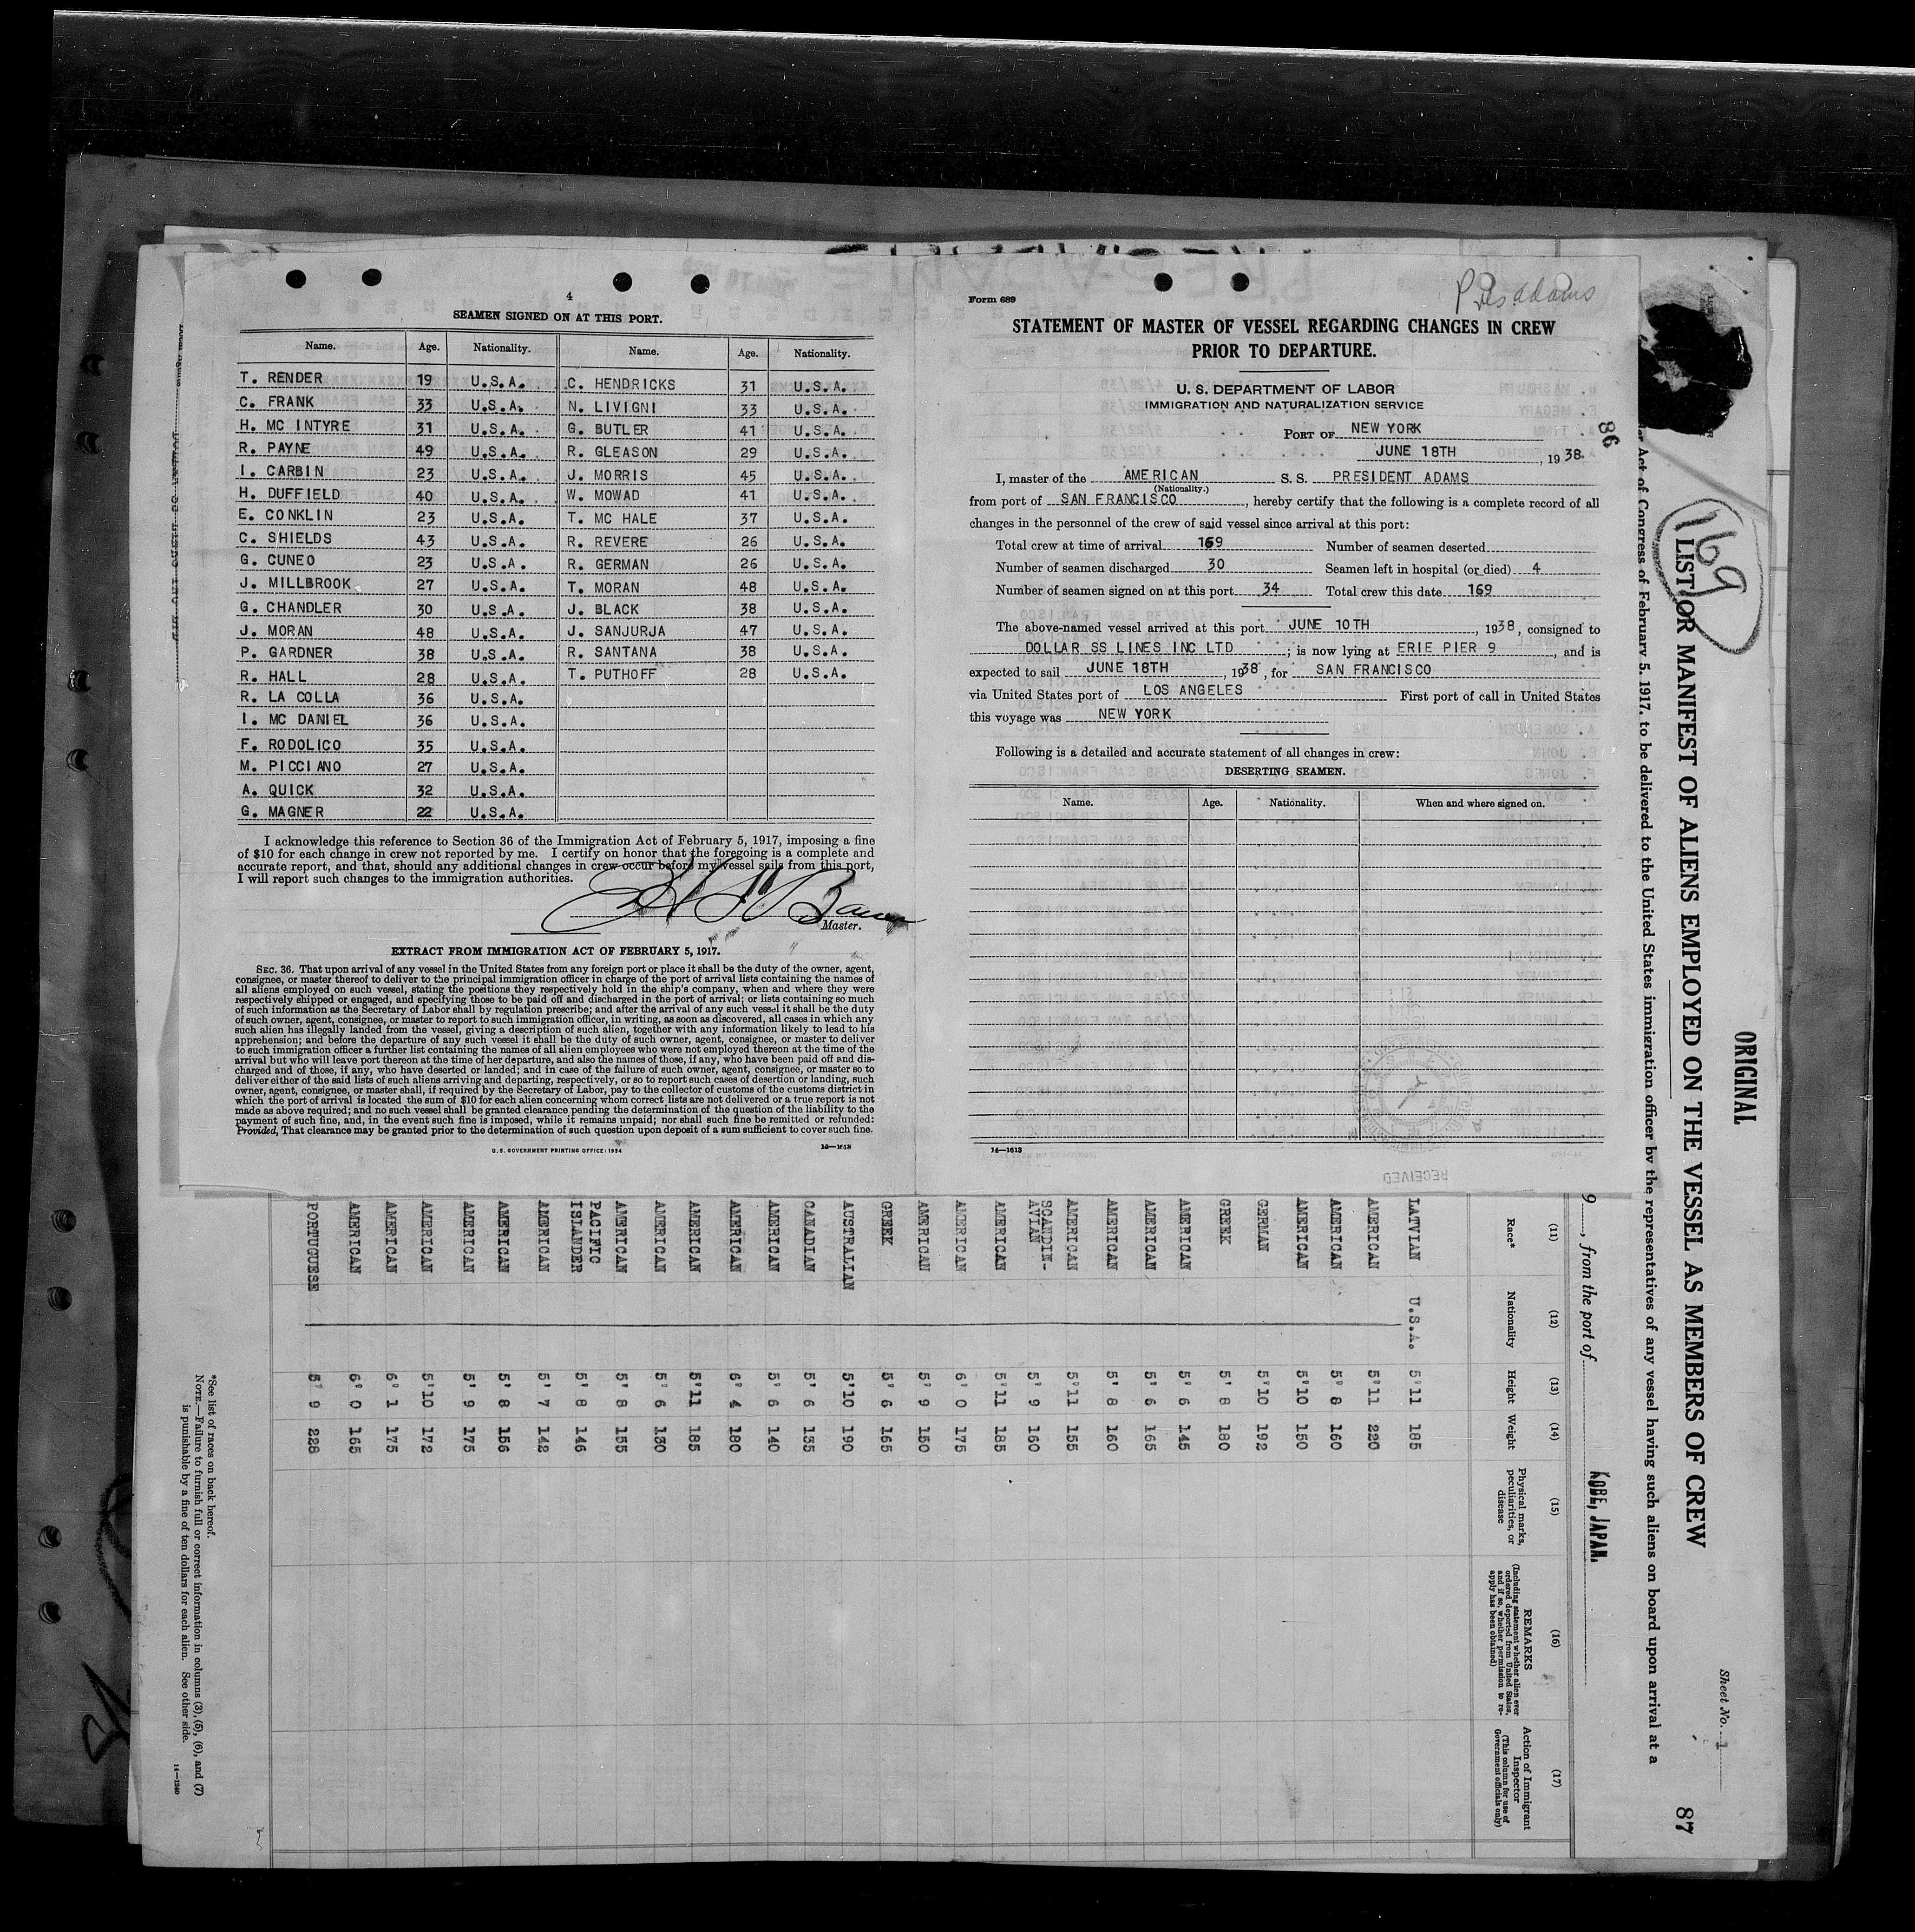 4
SEAMEN SIGNED ON AT THIS PORT.
Name. Age. Nationality. Name. Age. Nationality.
T. RENDER 19 U.S.A. C. HENDRICKS 31 U.S.A.
C. FRANK 33 U.S.A. N. LIVIGNI 33 U.S.A.
H. MC INTYRE 31 U.S.A. G. BUTLER 41 U.S.A.
R. PAYNE 49 U.S.A. R. GLEASON 29 U.S.A.
I. CARBIN 23 U.S.A. J. MORRIS 45 U.S.A.
H. DUFFIELD 40 U.S.A. W. MOWAD 41 U.S.A.
E. CONKLIN 23 U.S.A. T. MC HALE 37 U.S.A.
C. SHIELDS 43 U.S.A. R. REVERE 26 U.S.A.
G. CUNEO 23 U.S.A. R. GERMAN 26 U.S.A.
J. MILLBROOK 27 U.S.A. T. MORAN 48 U.S.A.
G. CHANDLER 30 U.S.A. J. BLACK 38 U.S.A.
J. MORAN 48 U.S.A. J. SANJURJA 47 U.S.A.
P. GARDNER 38 U.S.A. R. SANTANA 38 U.S.A.
R. HALL 28 U.S.A. T. PUTHOFF 28 U.S.A.
R. LA COLLA 36 U.S.A.
I. MC DANIEL 36 U.S.A.
F. RODOLICO 35 U.S.A.
M. PICCIANO 27 U.S.A.
A. QUICK 32 U.S.A.
G. MAGNER 22 U.S.A.
I acknowledge this reference to Section 36 of the Immigration Act of February 5, 1917, imposing a fine
of $10 for each change in crew not reported by me. I certify on honor that the foregoing is a complete and
accurate report, and that, should any additional changes in crew occur before my vessel sails from this port,
I will report such changes to the immigration authorities.
Master.
EXTRACT FROM IMMIGRATION ACT OF FEBRUARY 5, 1917.
SEC. 36. That upon arrival of any vessel in the United States from any foreign port or place it shall be the duty of the owner, agent,
consignee, or master thereof to deliver to the principal immigration officer in charge of the port of arrival lists containing the names of
all aliens employed on such vessel, stating the positions they respectively hold in the ship's company, when and where they were
respectively shipped or engaged, and specifying those to be paid off and discharged in the port of arrival; or lists containing so much
of such information as the Secretary of Labor shall by regulation prescribe; and after the arrival of any such vessel it shall be the duty
of such owner, agent, consignee, or master to report to such immigration officer, in writing, as soon as discovered, all cases in which any
such alien has illegally landed from the vessel, giving a description of such alien, together with any information likely to lead to his
apprehension; and before the departure of any such vessel it shall be the duty of such owner, agent, consignee, or master to deliver
to such immigration officer a further list containing the names of all alien employees who were not employed thereon at the time of the
arrival but who will leave port thereon at the time of her departure, and also the names of those, if any, who have been paid off and dis-
charged and of those, if any, who have deserted or landed; and in case of the failure of such owner, agent, consignee, or master so to
deliver either of the said lists of such aliens arriving and departing, respectively, or so to report such cases of desertion or landing, such
owner, agent, consignee, or master shall, if required by the Secretary of Labor, pay to the collector of customs of the customs district in
which the port of arrival is located the sum of $10 for each alien concerning whom correct lists are not delivered or a true report is not
made as above required; and no such vessel shall be granted clearance pending the determination of the question of the liability to the
payment of such fine, and, in the event such fine is imposed, while it remains unpaid; nor shall such fine be remitted or refunded:
Provided, That clearance may be granted prior to the determination of such question upon deposit of a sum sufficient to cover such fine.
U.S. GOVERNMENT PRINTING OFFICE: 1934
14—1613
Form 689
Pres adams
STATEMENT OF MASTER OF VESSEL REGARDING CHANGES IN CREW
PRIOR TO DEPARTURE.
U. S. DEPARTMENT OF LABOR
IMMIGRATION AND NATURALIZATION SERVICE
PORT OF NEW YORK
JUNE 18TH, 1938.
86
I, master of the AMERICAN S. S. PRESIDENT ADAMS
(Nationality.)
from port of SAN FRANCISCO, hereby certify that the following is a complete record of all
changes in the personnel of the crew of said vessel since arrival at this port:
Total crew at time of arrival 169 Number of seamen deserted
Number of seamen discharged 30 Seamen left in hospital (or died) 4
Number of seamen signed on at this port 34 Total crew this date 169
The above-named vessel arrived at this port JUNE 10TH, 1938, consigned to
DOLLAR SS LINES INC LTD; is now lying at ERIE PIER 9, and is
expected to sail JUNE 18TH, 1938, for SAN FRANCISCO
via United States port of LOS ANGELES First port of call in United States
this voyage was NEW YORK
Following is a detailed and accurate statement of all changes in crew:
DESERTING SEAMEN.
Name. Age. Nationality. When and where signed on.
14—1613
RECEIVED
ORIGINAL
Sheet No. 1
87
169
LIST OR MANIFEST OF ALIENS EMPLOYED ON THE VESSEL AS MEMBERS OF CREW
Act of Congress of February 5, 1917, to be delivered to the United States immigration officer by the representatives of any vessel having such aliens on board upon arrival at a
9, from the port of KOBE, JAPAN.
(11) (12) (13) (14) (15) (16) (17)
Race* Nationality Height Weight Physical marks, peculiarities, or disease REMARKS (Including statement whether alien ever ordered deported from United States, and if so, whether permission to reapply has been obtained) Action of Immigrant Inspector (This column for use of Government officials only)
LATVIAN U.S.A. 5'11 185
AMERICAN 5'11 220
AMERICAN 5' 8 160
AMERICAN 5'10 150
GERMAN 5'10 192
GREEK 5' 8 180
AMERICAN 5' 6 145
AMERICAN 5' 6 165
AMERICAN 5' 8 160
AMERICAN 5'11 155
SCANDIN-
AVIAN 5' 9 160
AMERICAN 5'11 185
AMERICAN 6' 0 175
AMERICAN 5' 9 150
GREEK 5' 6 165
AUSTRALIAN 5'10 190
CANADIAN 5' 6 135
AMERICAN 5' 6 140
AMERICAN 6' 4 180
AMERICAN 5'11 185
AMERICAN 5' 6 130
AMERICAN 5' 8 155
PACIFIC
ISLANDER 5' 8 146
AMERICAN 5' 7 142
AMERICAN 5' 8 156
AMERICAN 5' 9 175
AMERICAN 5'10 172
AMERICAN 6' 1 175
AMERICAN 6' 0 165
PORTUGUESE 5' 9 228
*See list of races on back hereof.
NOTE.—Failure to furnish full or correct information in columns (3), (5), (6), and (7)
is punishable by a fine of ten dollars for each alien. See other side.
14—1240